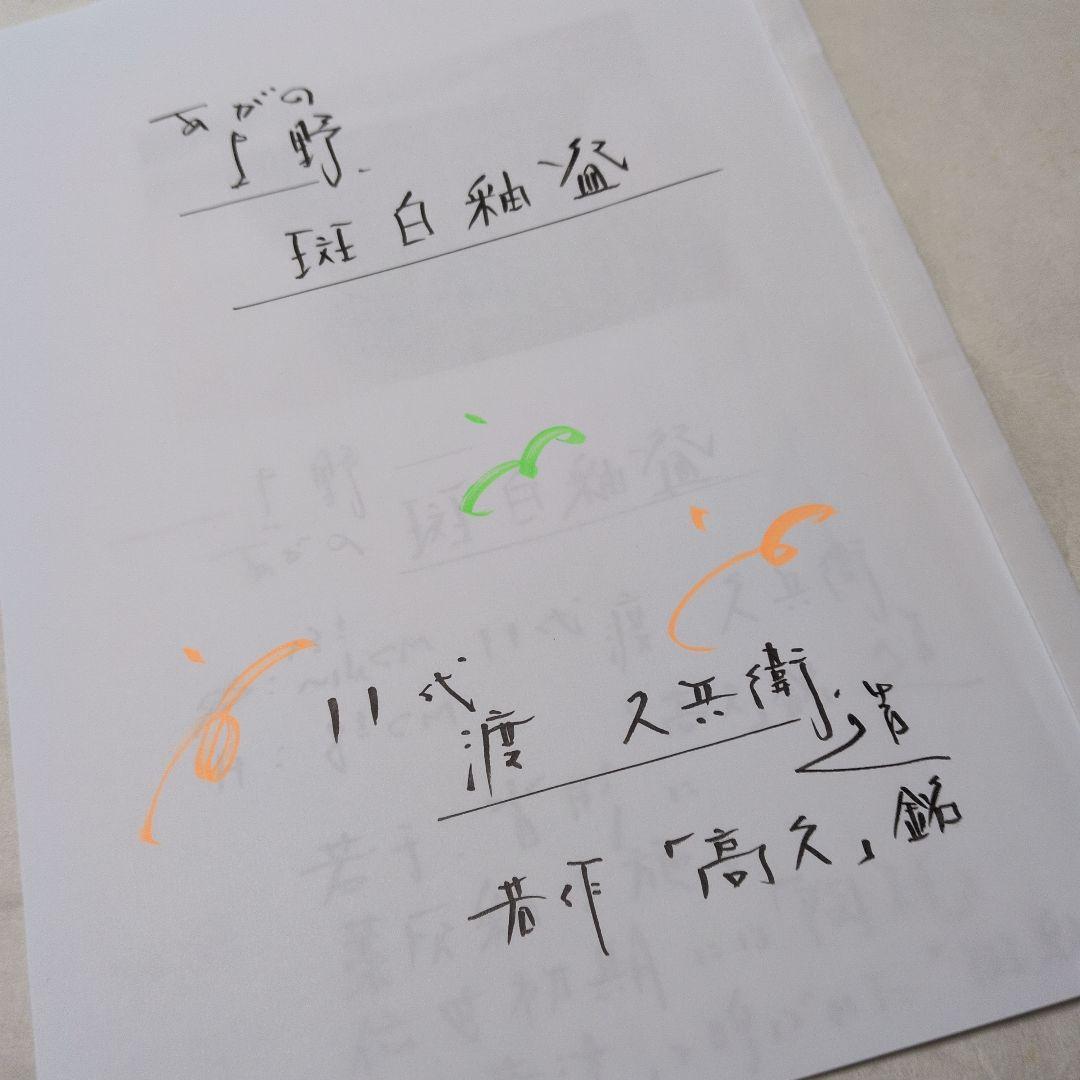 あがの
上野
斑白釉盌
11代
渡 久兵衛 造
若作 「高久」銘